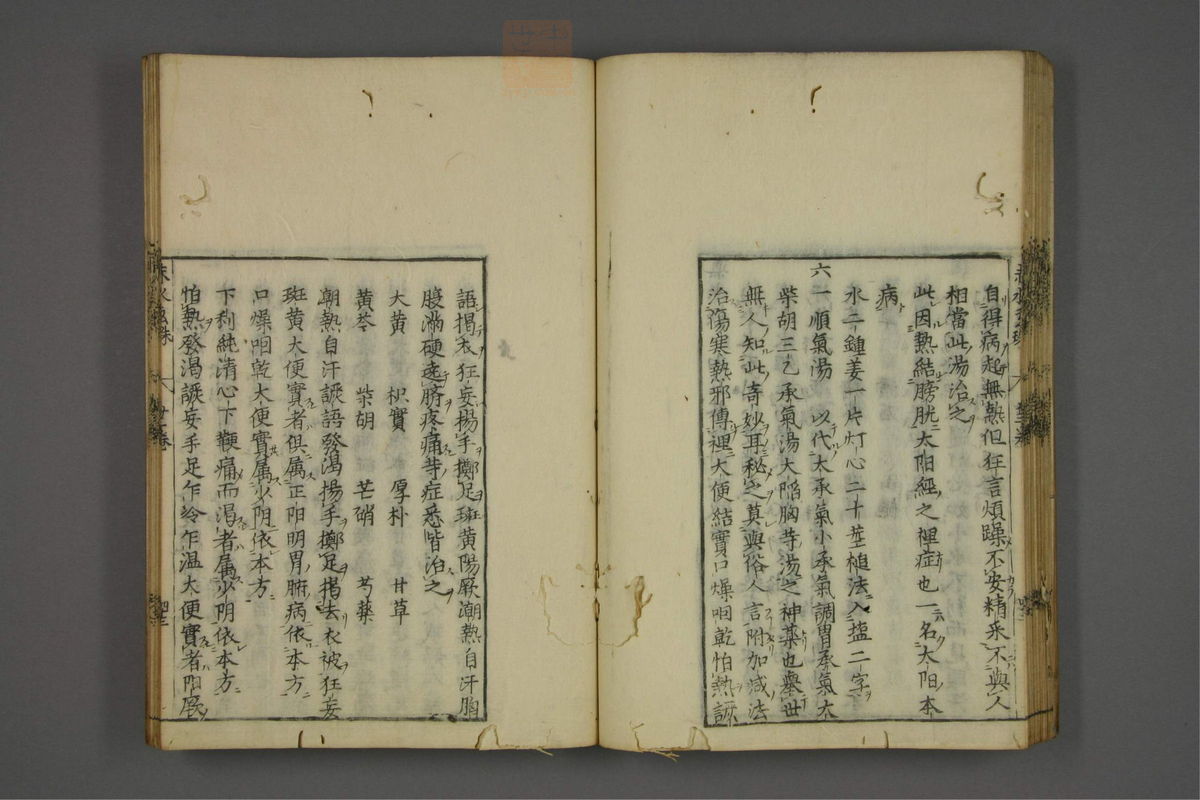 自得病起無熱但狂言煩躁不安精采不與人
相當此湯治之
此因熱結膀胱太阳經之裡症也一名太阳本
病
水二鍾姜一片灯心二十莖槌法入塩二字
六一順氣湯　以代大承氣小承氣調胃承氣大
柴胡三乙承氣湯大陷胸等湯之神藥也舉世
無人知此奇妙耳秘之莫與俗人言附加减法
治傷寒熱邪傳裡大便結實口燥咽乾怕熱譫
語揭衣狂妄揚手擲足斑黄陽厥潮熱自汗胸
腹滿硬遶臍疼痛等症悉皆治之
大黄　枳實　厚朴　甘草
黄芩　柴胡　芒硝　芍藥
潮熱自汗譫語發渴揚手擲足揭去衣被狂妄
斑黄大便實者俱属正阳明胃腑病依本方
口燥咽乾大便實属少阴依本方
下利純清心下鞕痛而渴者属少阴依本方
怕熱發渴譫妄手足乍冷乍温大便實者阳厥